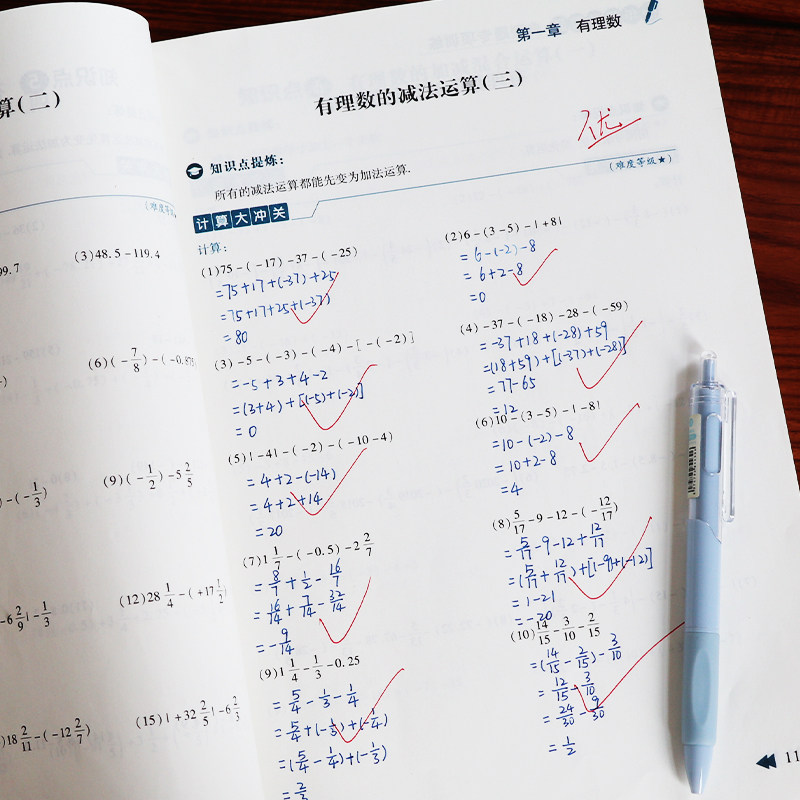 算(二)
(难度等级★
99.7
(3)48.5-119.4
(6)(-7/8)-(-0.875
)-(-1/3)
(9)(-1/2)-5 2/5
-6 2/9|-1/3
(12)28 1/4-(+17 1/2)
)18 2/11-(-12 2/7)
(15)|+32 2/5|-6 2/3
第一章 有理数
有理数的减法运算(三)
优
知识点提炼:
所有的减法运算都能先变为加法运算.
(难度等级★)
计算大冲关
计算:
(1)75-(-17)-37-(-25)
=75+17+(-37)+25
=75+17+25+(-37)
=80
(2)6-(3-5)-|+8|
=6-(-2)-8
=6+2-8
=0
(3)-5-(-3)-(-4)-[-(-2)]
=-5+3+4-2
=(3+4)+[(-5)+(-2)]
=0
(4)-37-(-18)-28-(-59)
=-37+18+(-28)+59
=(18+59)+[(-37)+(-28)]
=77-65
=12
(5)|-4|-(-2)-(-10-4)
=4+2-(-14)
=4+2+14
=20
(6)10-(3-5)-|-8|
=10-(-2)-8
=10+2-8
=4
(7)1 1/7-(-0.5)-2 2/7
=8/7+1/2-16/7
=16/14+7/14-32/14
=-9/14
(8)5/17-9-12-(-12/17)
=5/17-9-12+12/17
=(5/17+12/17)+[(-9)+(-12)]
=1-21
=-20
(9)1 1/4-1/3-0.25
=5/4-1/3-1/4
=5/4+(-1/3)+(-1/4)
=(5/4-1/4)+(-1/3)
=2/3
(10)14/15-3/10-2/15
=(14/15-2/15)-3/10
=12/15-3/10
=24/30-9/30
=1/2
11